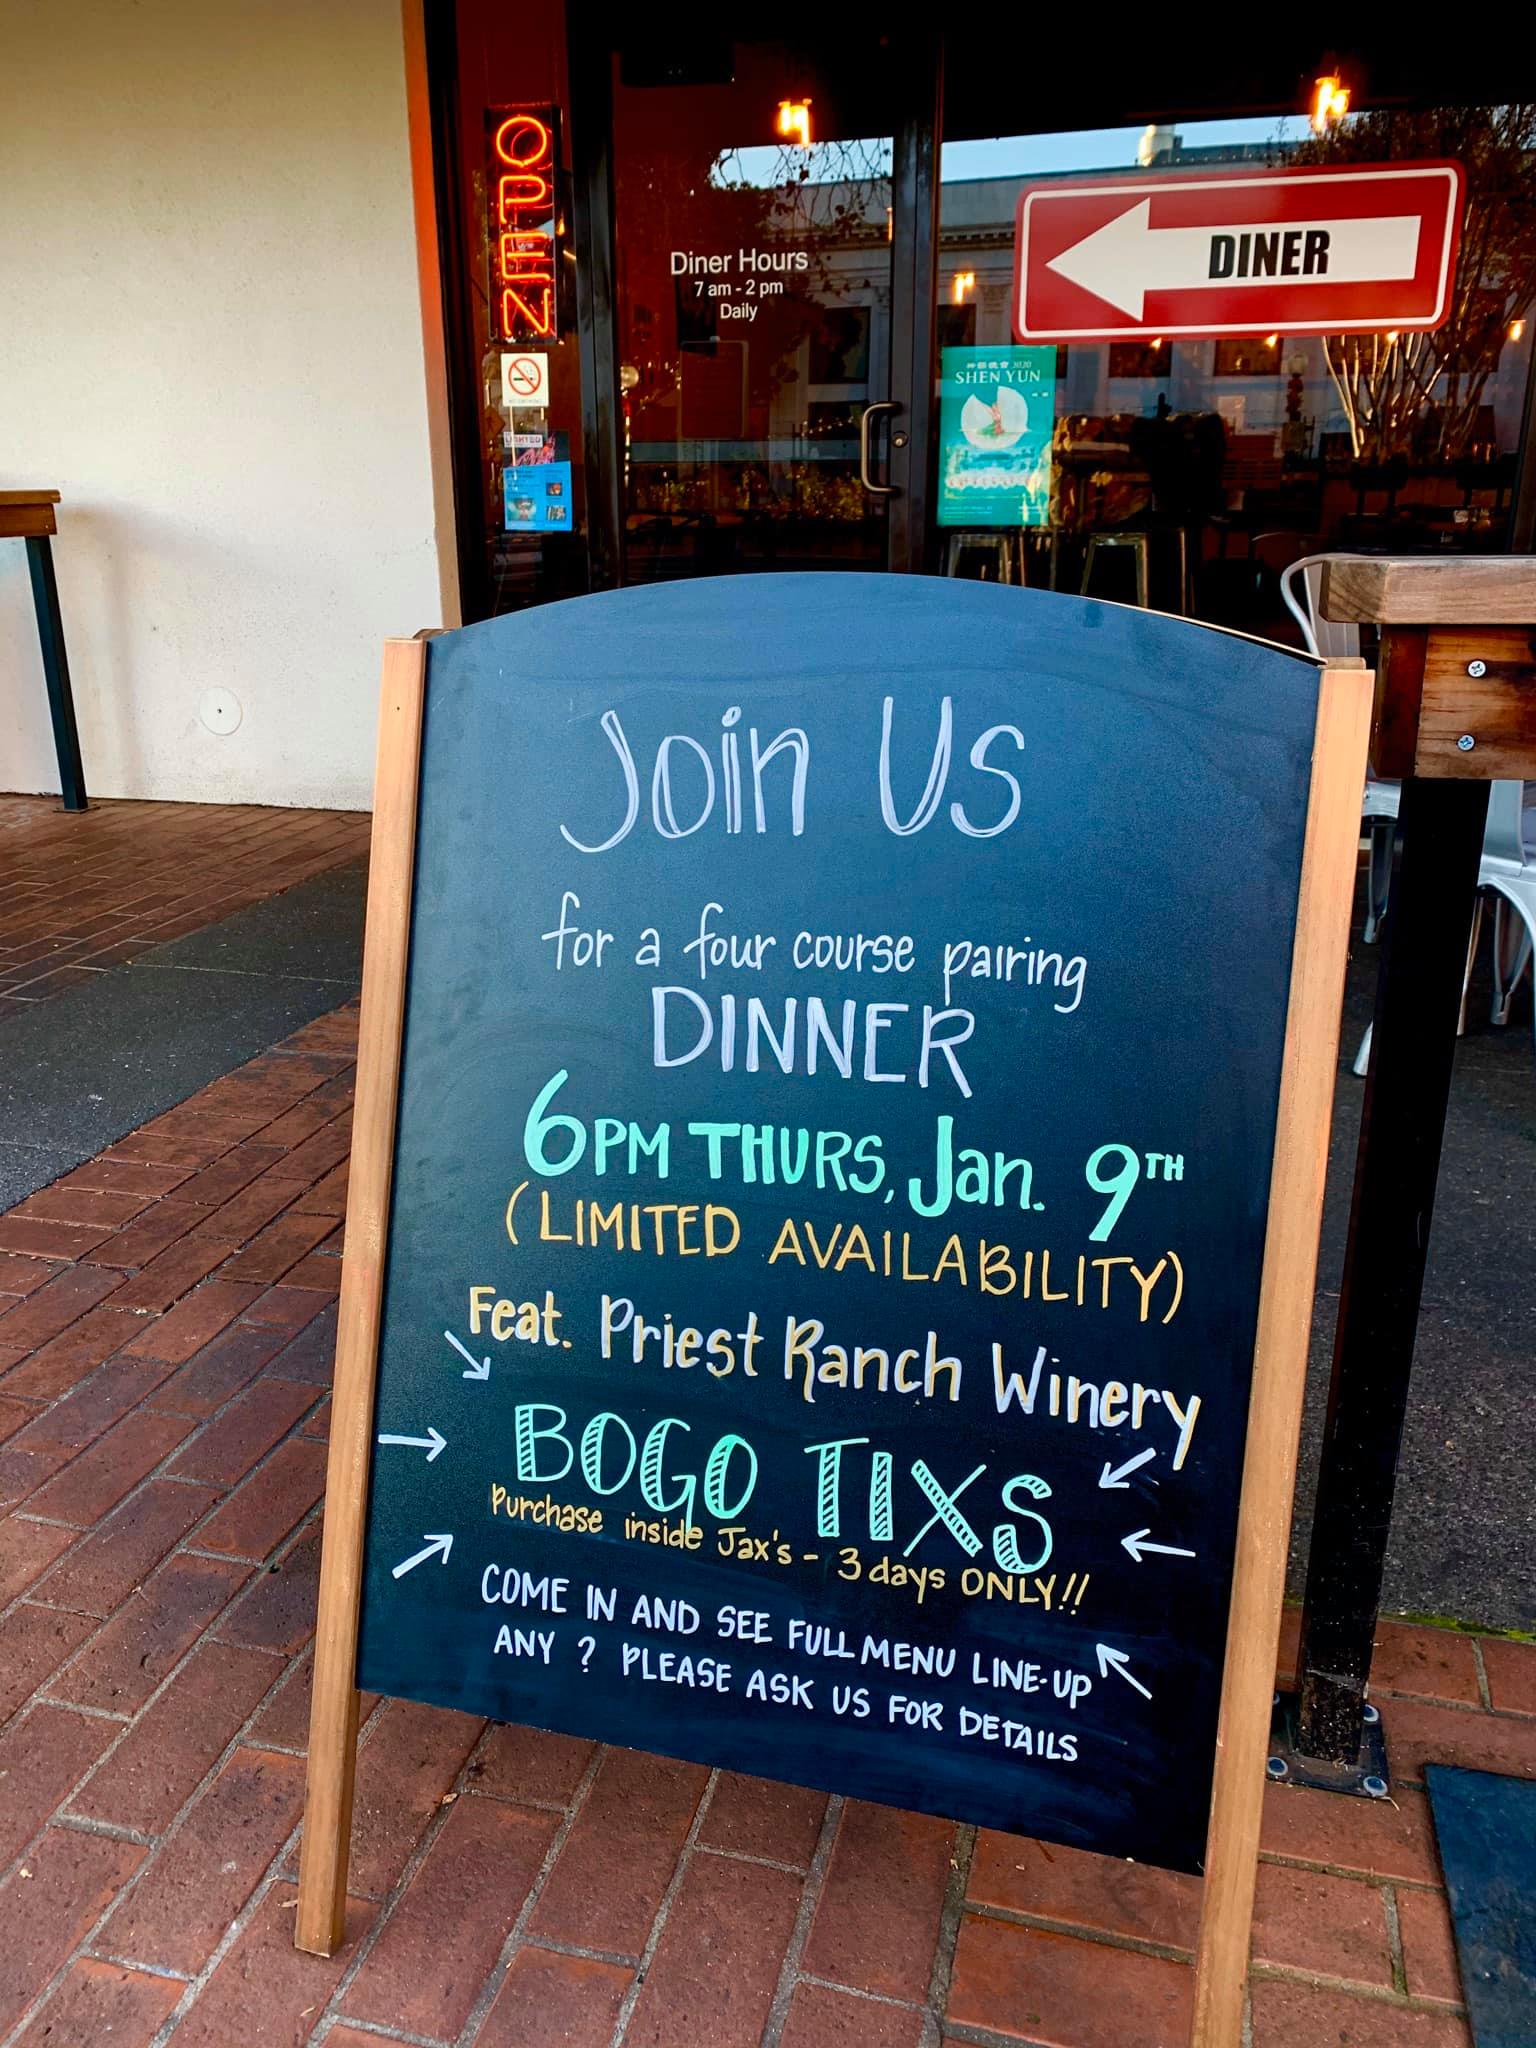 OPEN
Diner Hours
7 am - 2 pm
Daily
DINER
2020
SHEN YUN
Join Us
for a four course pairing
DINNER
6PM THURS, Jan. 9TH
(LIMITED AVAILABILITY)
Feat. Priest Ranch Winery
BOGO TIXS
Purchase inside Jax's - 3 days ONLY!!
COME IN AND SEE FULL MENU LINE-UP
ANY ? PLEASE ASK US FOR DETAILS